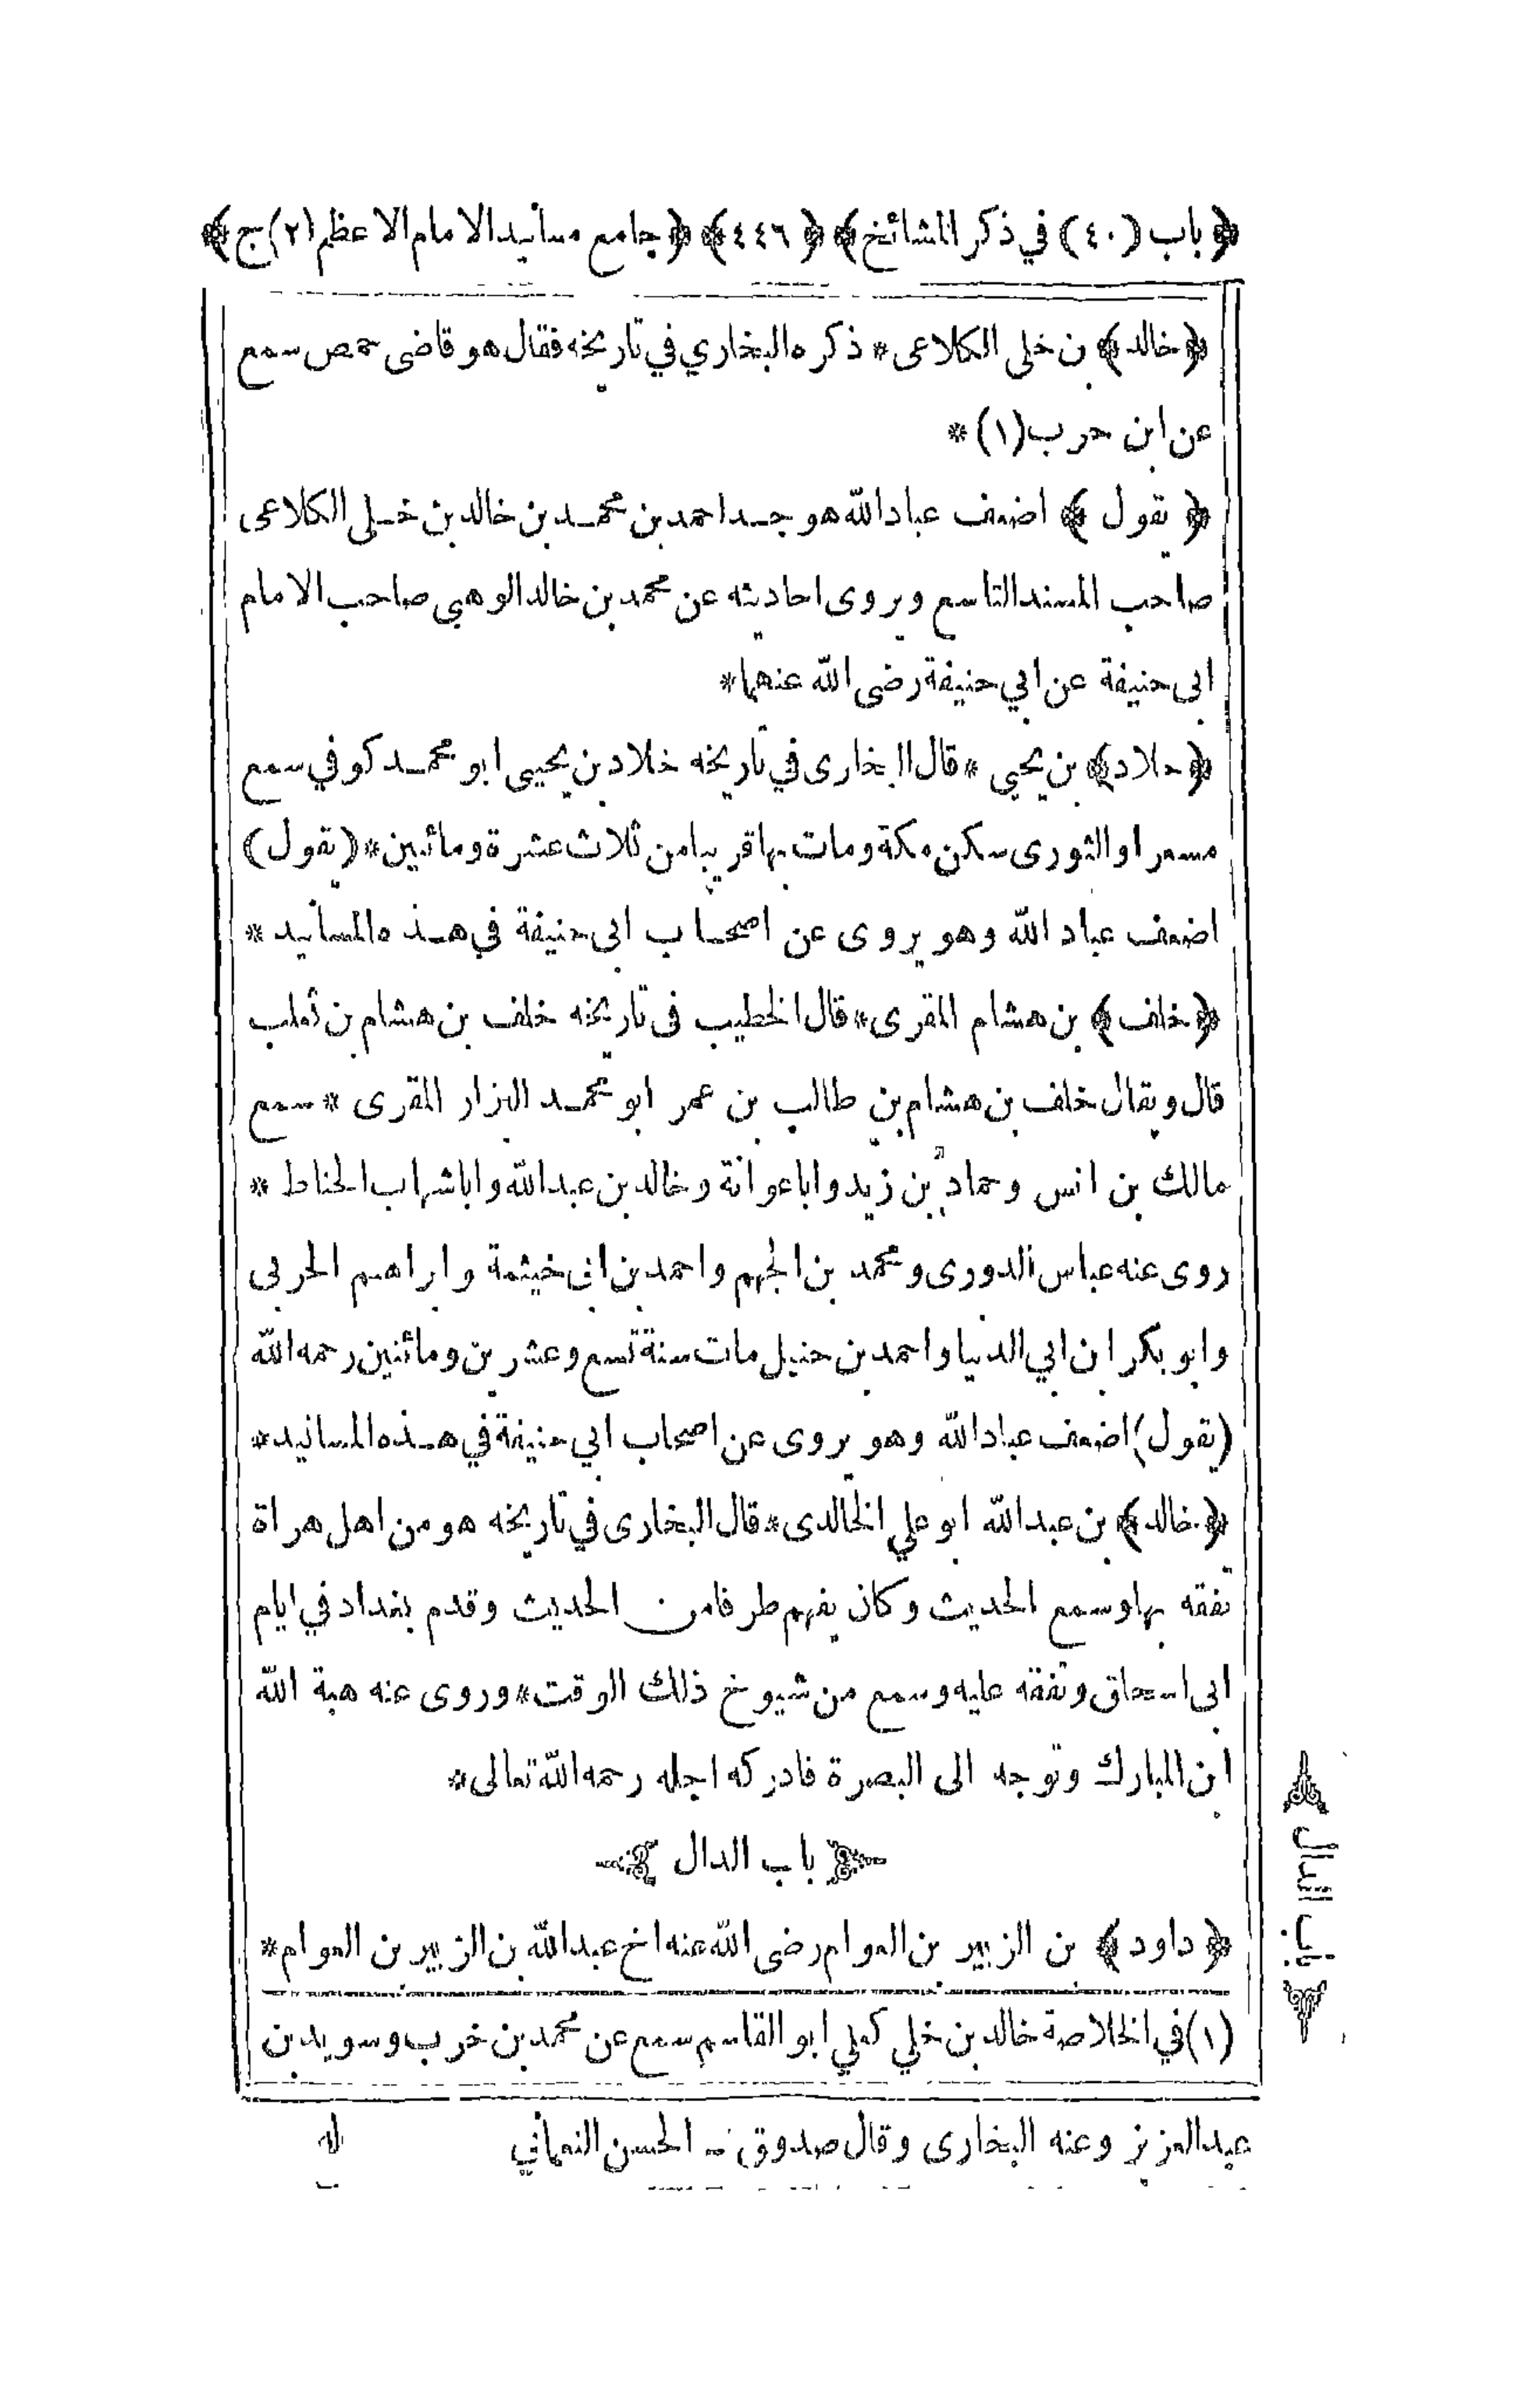 ﴿ باب (٤٠) في ذكر المشائخ ﴾ ﴿ ٤٤٦ ﴾ ﴿ جامع مسانيد الامام الاعظم (٢) ج ﴾
﴿ خالد ﴾ بن خلى الكلاعى * ذكره البخاري في تاريخه فقال هو قاضى حمص سمع
عن ابن حرب (١) *
﴿ يقول ﴾ اضعف عباد الله هو جد احمد بن محمد بن خالد بن خلى الكلاعى
صاحب المسند التاسع ويروى احاديثه عن محمد بن خالد الوهبي صاحب الامام
ابى حنيفة عن ابي حنيفة رضى الله عنهما *
﴿ خلاد ﴾ بن يحيى * قال البخارى في تاريخه خلاد بن يحيى ابو محمد كوفي سمع
مسعر او الثورى سكن مكة ومات بها قريبا من ثلاث عشرة ومائتين * (يقول)
اضعف عباد الله وهو يروى عن اصحاب ابى حنيفة في هذه المسانيد *
﴿ خلف ﴾ بن هشام المقرى * قال الخطيب فى تاريخه خلف بن هشام بن ثعلب
قال ويقال خلف بن هشام بن طالب بن عمر ابو محمد البزار المقرى * سمع
مالك بن انس وحماد بن زيد وابا عوانة وخالد بن عبد الله وابا شهاب الحناط *
روى عنه عباس الدورى ومحمد بن الجهم واحمد بن ابى خيثمة وابراهيم الحربى
وابو بكر ابن ابي الدنيا واحمد بن حنبل مات سنة تسع وعشرين ومائتين رحمه الله
(يقول) اضعف عباد الله وهو يروى عن اصحاب ابي حنيفة في هذه المسانيد *
﴿ خالد ﴾ بن عبد الله ابو علي الخالدى * قال البخارى في تاريخه هو من اهل هراة
تفقه بها وسمع الحديث وكان يفهم طرفا من الحديث وقدم بغداد في ايام
ابى اسحاق وتفقه عليه وسمع من شيوخ ذلك الوقت * وروى عنه هبة الله
ابن المبارك وتوجه الى البصرة فادركه اجله رحمه الله تعالى *
باب الدال
﴿ داود ﴾ بن الزبير بن العوام رضى الله عنه اخ عبد الله بن الزبير بن العوام *
(١) في الخلاصة خالد بن خلي كعلي ابو القاسم سمع عن محمد بن خرب وسويد بن
عبد العزيز وعنه البخارى وقال صدوق - الحسن النعماني
باب الدال